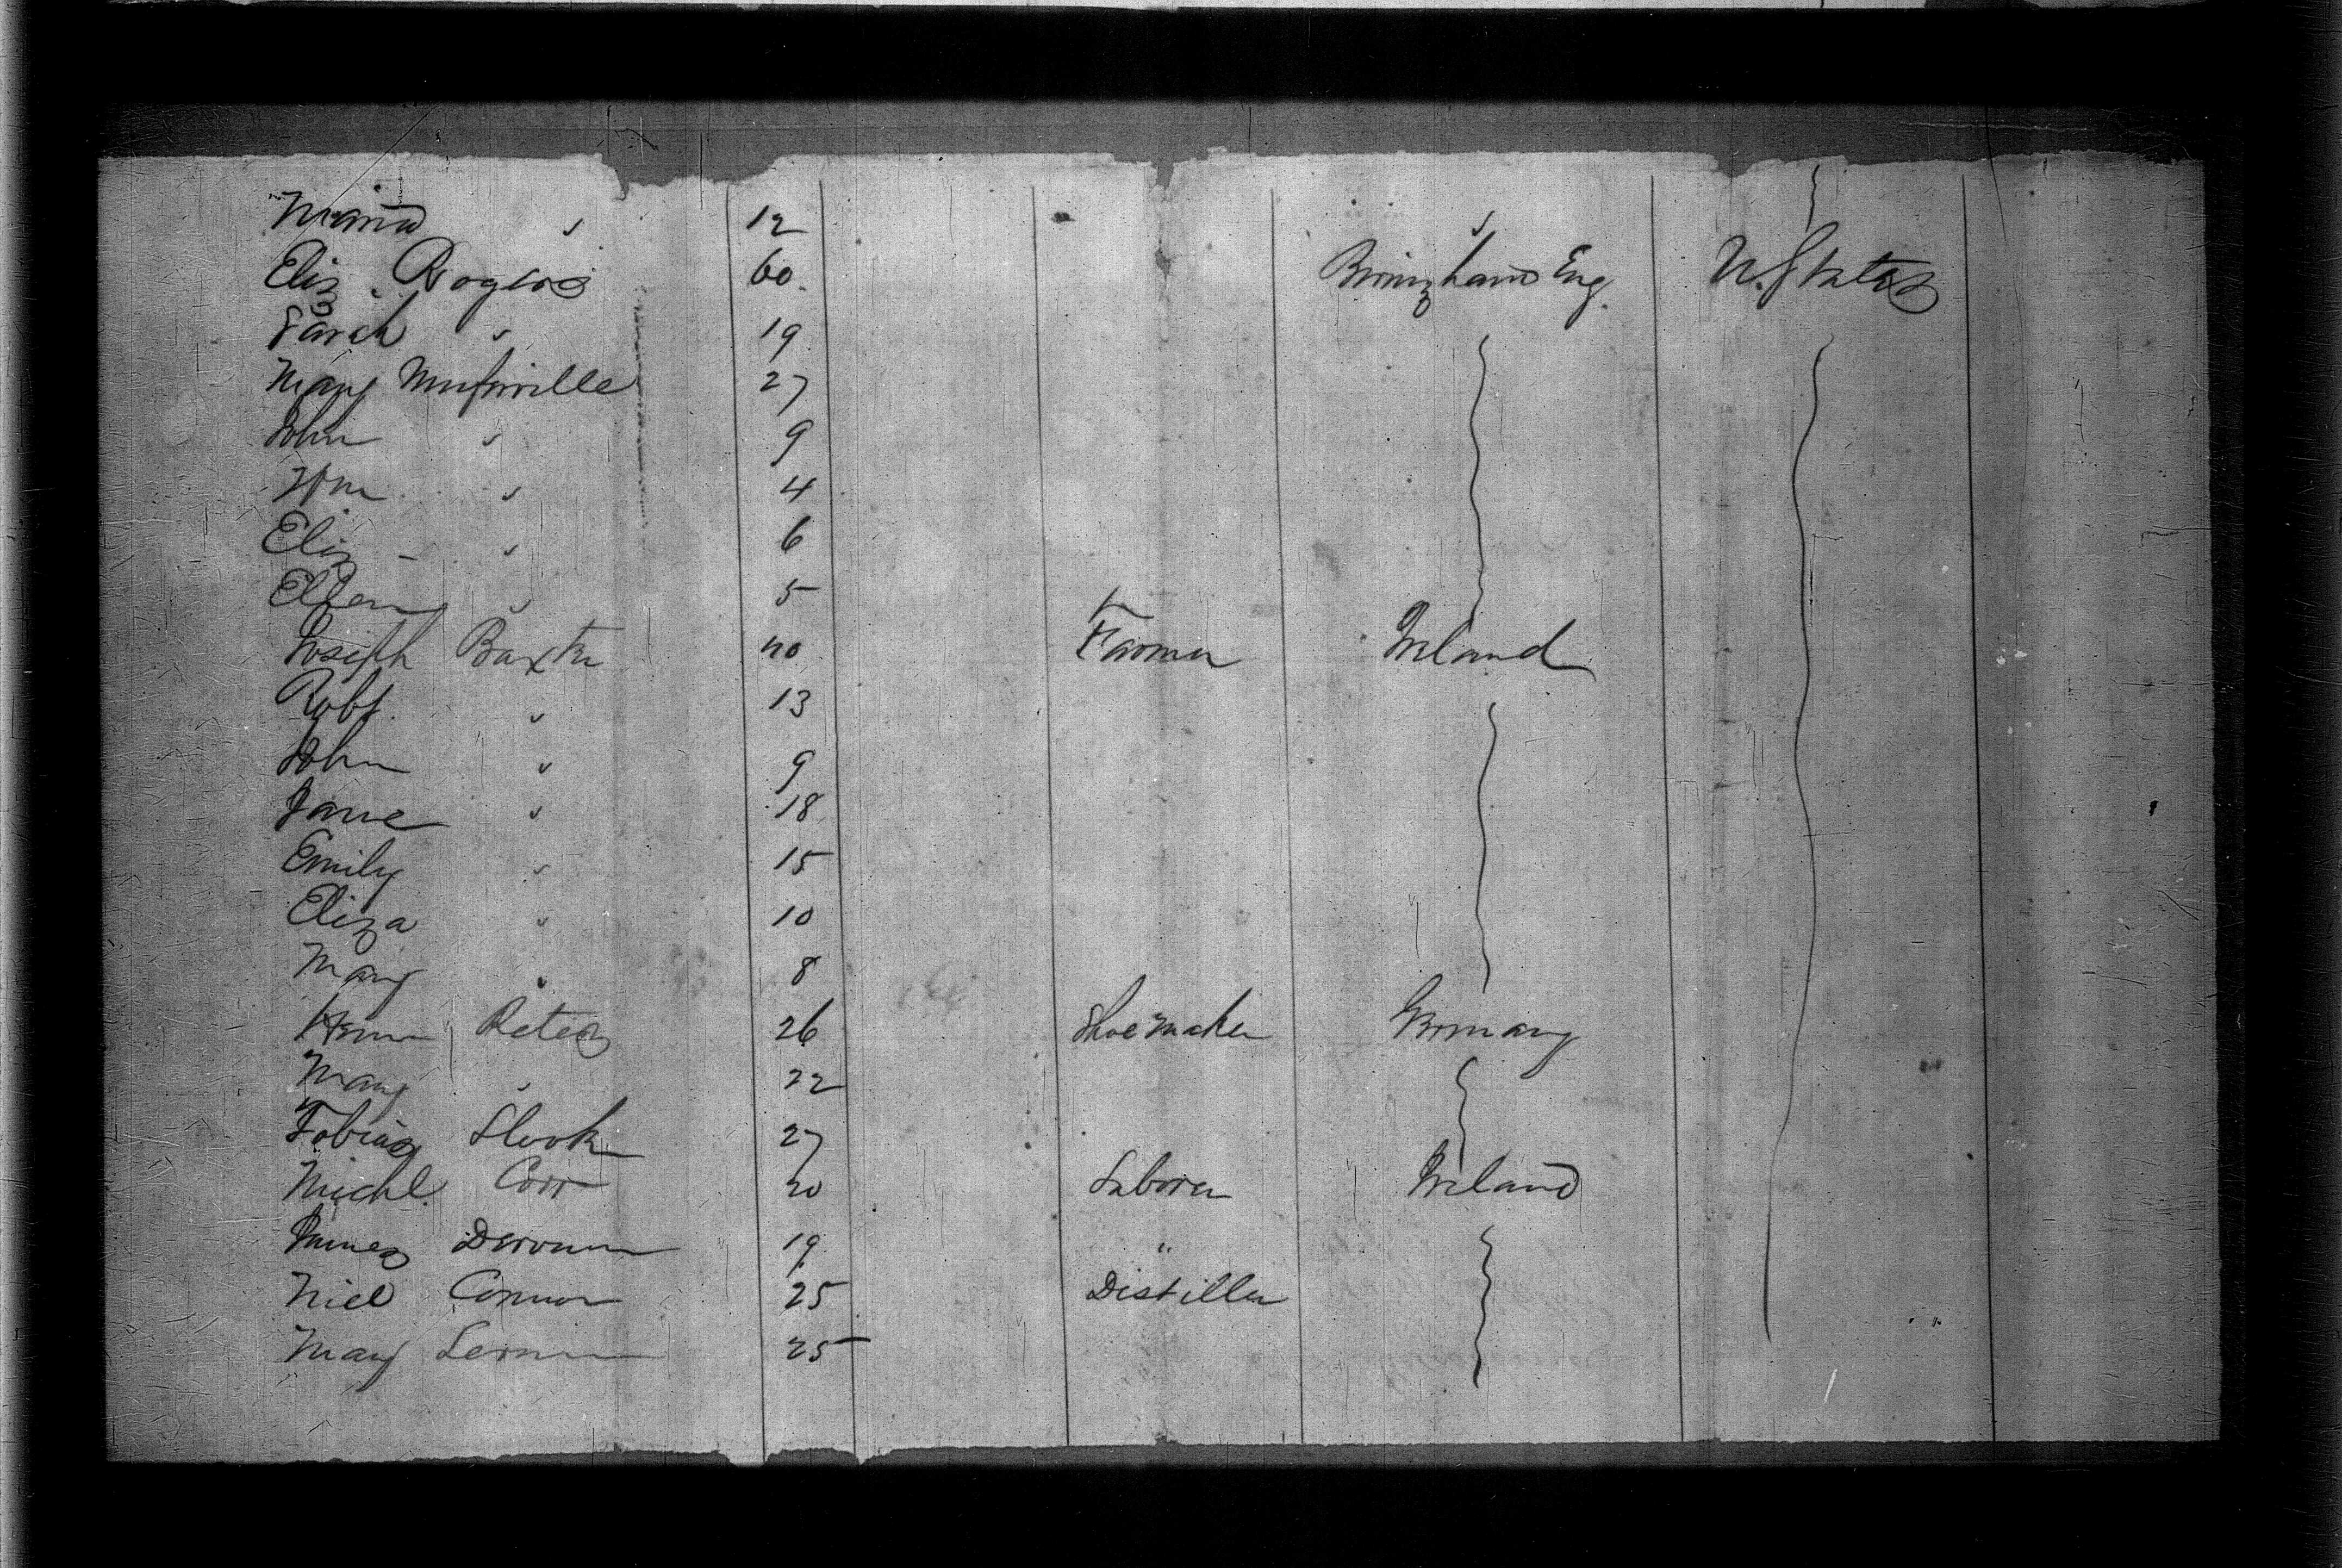 Maria " 12 "
Eliz. Rogers 60. Birmingham Eng. U. States
Sarah " 19
Mary 27
John " 9
Wm " 4
Eliz - " 6
Ellen " 5
Joseph Baxter 40 Farmer Ireland
Robt. " 13
John " 9
Jane " 18
Emily " 15
Eliza " 10
Mary " 8
Henry Peters 26 Shoemaker Germany
Mary " 22
Tobias 27
Michl. Corr 20 Laborer Ireland
James 19 "
Niel Connor 25 Distiller
Mary 25